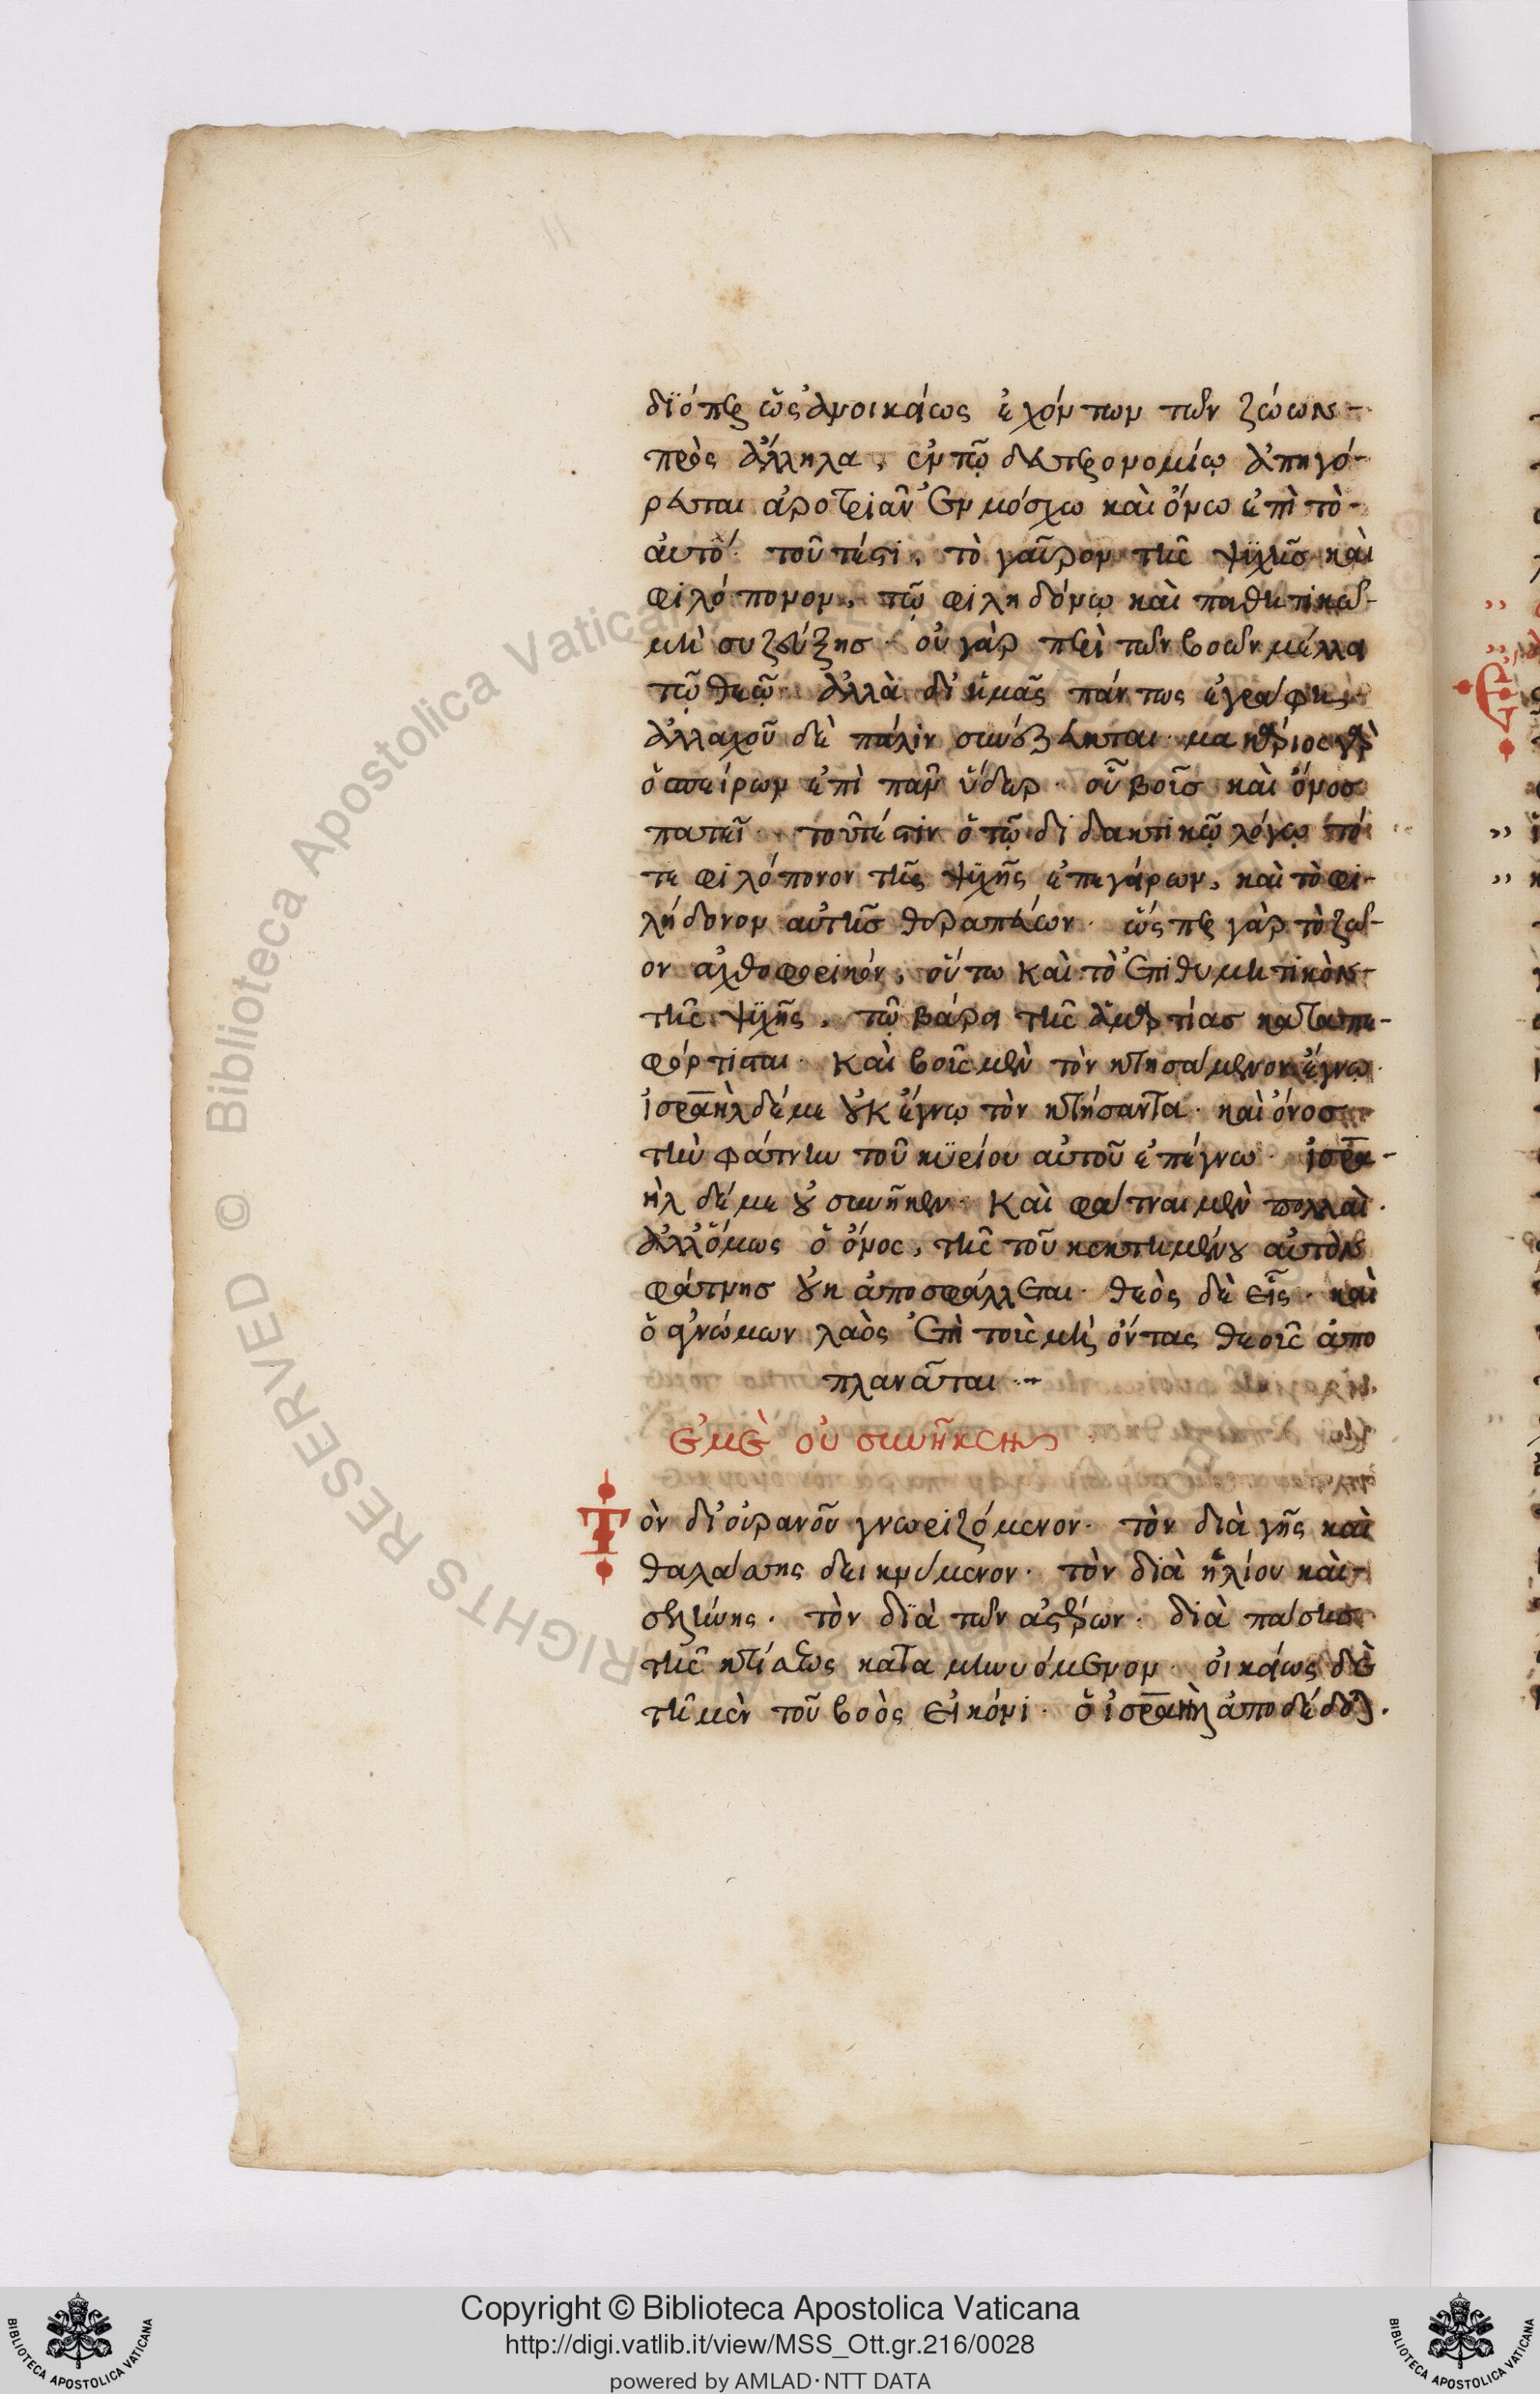 διόπερ ὡς ἀνοικείως ἐχόντων τῶν ζώων
πρὸς ἄλληλα, ἐν τῷ δευτερονομίῳ ἀπηγό-
ρευται ἀροτριᾶν ἐν μόσχω καὶ ὄνω ἐπὶ τὸ
αὐτό· τοῦτέστι, τὸ γαῦρον τῆς ψυχῆς καὶ
φιλόπονον, τῷ φιληδόνῳ καὶ παθητικῶ
μὴ συζεύξης· οὐ γὰρ περὶ τῶν βοῶν μέλλει
τῷ θεῷ· ἀλλὰ δι' ἡμᾶς πάντως ἐγράφη·
ἀλλαχοῦ δὲ πάλιν συνέζευκται· μακάριος γὰρ
ὁ σπείρων ἐπὶ πᾶν ὕδωρ· οὗ βοῦς καὶ ὄνος
πατεῖ· τουτέστιν ὁ τῷ διδακτικῷ λόγῳ τό
τε φιλόπονον τῆς ψυχῆς ἐπεγείρων, καὶ τὸ φι-
λήδονον αὐτῆς θεραπεύων· ὥσπερ γὰρ τὸ ζῶ-
ον ἀχθοφορικόν, οὕτω καὶ τὸ ἐπιθυμητικὸν
τῆς ψυχῆς, τῷ βάρει τῆς ἁμαρτίας καταπε-
φόρτισται· Καὶ βοῦς μὲν τὸν κτησάμενον ἔγνω·
ἰσραὴλ δέ με οὐκ ἔγνω τὸν κτήσαντα· καὶ ὄνος
τὴν φάτνην τοῦ κυρίου αὐτοῦ ἐπέγνω· ἰσρα-
ὴλ δέ με οὐ συνῆκεν· Καὶ φάτναι μὲν πολλαὶ·
ἀλλ' ὅμως ὁ ὄνος, τῆς τοῦ κεκτημένου αὐτὸν
φάτνης οὐκ ἀποσφάλλεται· θεὸς δὲ εἷς· καὶ
ὁ ἀγνώμων λαὸς ἐπὶ τοὺς μὴ ὄντας θεοὺς ἀπο
πλανᾶται·
Ἐμὲ οὐ συνῆκεν
Τὸν δι' οὐρανοῦ γνωριζόμενον· τὸν διὰ γῆς καὶ
θαλάσσης δεικνύμενον· τὸν διὰ ἡλίου καὶ
σελήνης· τὸν διὰ τῶν ἀστέρων· διὰ πάσης
τῆς κτίσεως καταμηνυόμενον· οἰκείως δὲ
τῇ μὲν τοῦ βοὸς εἰκόνι· ὁ ἰσραὴλ ἀποδέδοται.
Copyright © Biblioteca Apostolica Vaticana
http://digi.vatlib.it/view/MSS_Ott.gr.216/0028
powered by AMLAD·NTT DATA